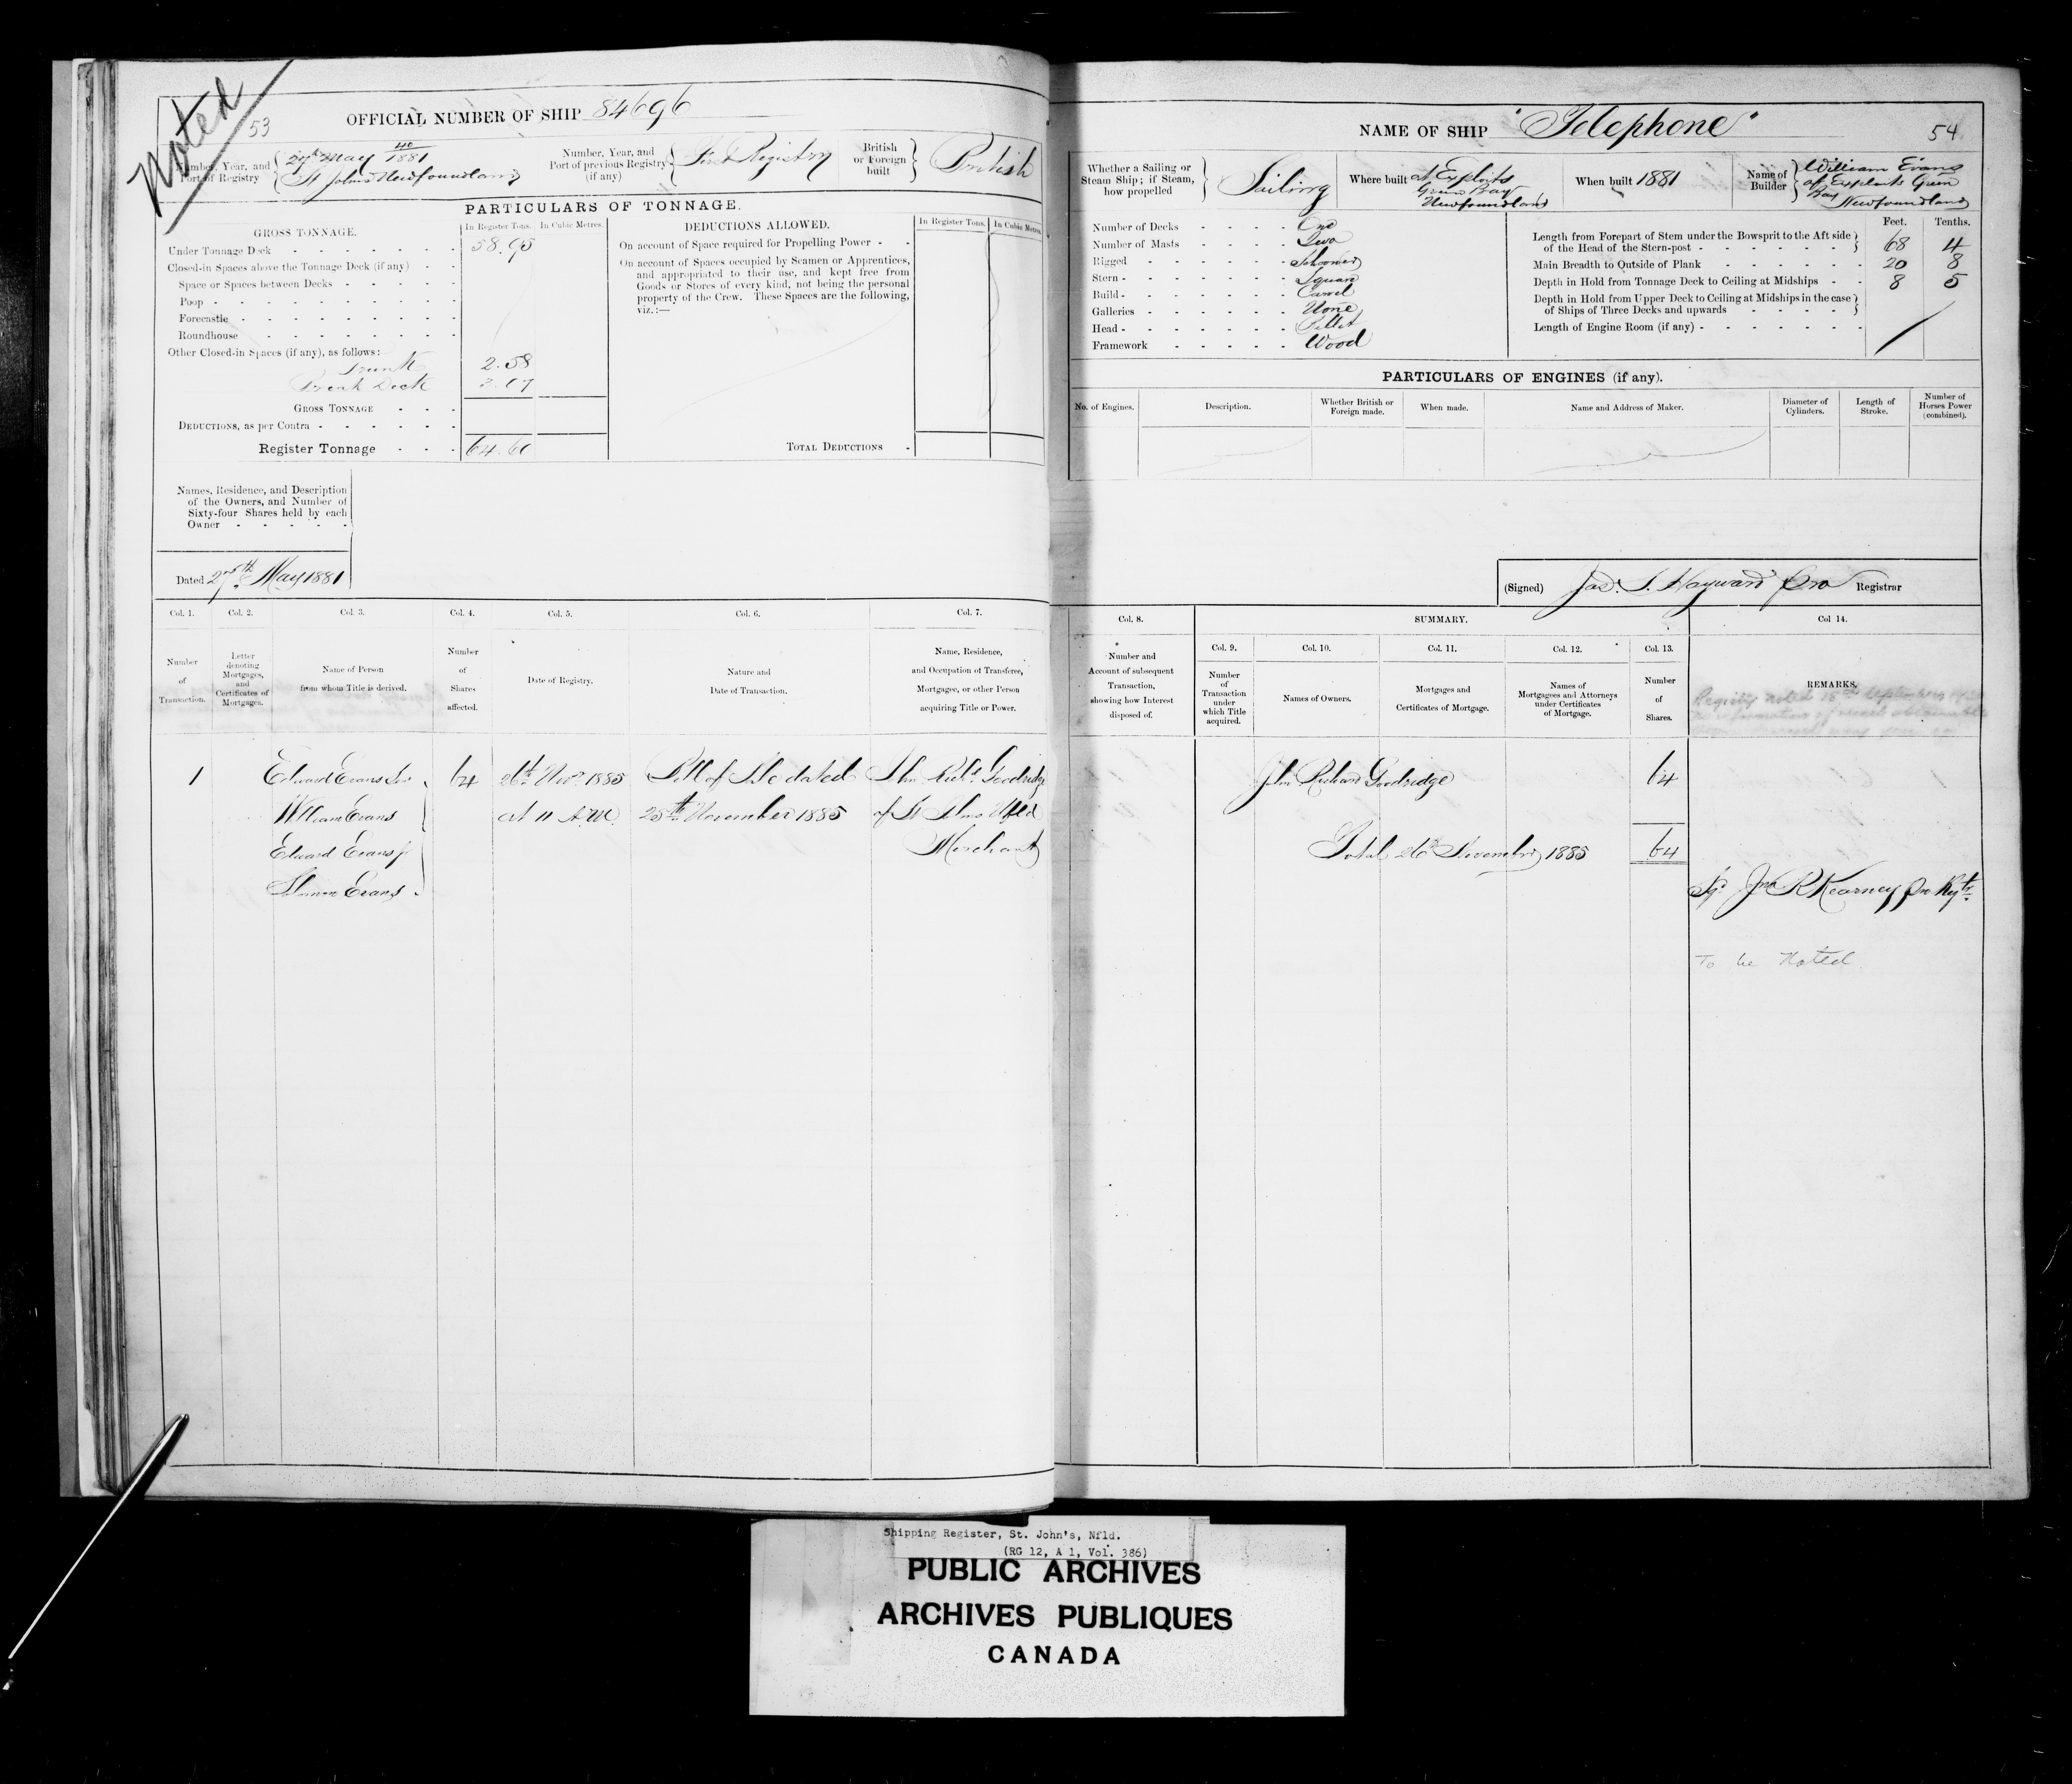 Noted
53
OFFICIAL NUMBER OF SHIP 84696
Number, Year, and Port of Registry
27th May 40/1881
St Johns Newfoundland
Number, Year, and Port of previous Registry (if any)
First Registry
British or Foreign built
British
PARTICULARS OF TONNAGE.
GROSS TONNAGE.
In Register Tons.
In Cubic Metres.
Under Tonnage Deck 58.95
Closed-in Spaces above the Tonnage Deck (if any)
Space or Spaces between Decks
Poop
Forecastle
Roundhouse
Other Closed-in Spaces (if any), as follows:
Trunk 2.58
Break Deck 3.07
GROSS TONNAGE
DEDUCTIONS, as per Contra
Register Tonnage 64.60
DEDUCTIONS ALLOWED.
In Register Tons.
In Cubic Metres.
On account of Space required for Propelling Power
On account of Spaces occupied by Seamen or Apprentices,
and appropriated to their use, and kept free from
Goods or Stores of every kind, not being the personal
property of the Crew. These Spaces are the following,
viz.:—
TOTAL DEDUCTIONS
Names, Residence, and Description
of the Owners, and Number of
Sixty-four Shares held by each
Owner
Dated 27th May 1881
Col. 1.
Col. 2.
Col. 3.
Col. 4.
Col. 5.
Col. 6.
Col. 7.
Number of Transaction.
Letter denoting Mortgages, and Certificates of Mortgages.
Name of Person from whom Title is derived.
Number of Shares affected.
Date of Registry.
Nature and Date of Transaction.
Name, Residence, and Occupation of Transferee, Mortgagee, or other Person acquiring Title or Power.
1
Edward Evans Sr
William Evans
Edward Evans Jr
Evans
64
26th Novr 1885
at 11 A.M.
Bill of Sale dated
25th November 1885
John Richd Goodridge
of St Johns Nfld
Merchant
NAME OF SHIP "Telephone"
54
Whether a Sailing or Steam Ship; if Steam, how propelled
Sailing
Where built
at Exploits
Green Bay
Newfoundland
When built 1881
Name of Builder
William Evans
of Exploits Green
Bay
Newfoundland
Number of Decks One
Number of Masts Two
Rigged Schooner
Stern Square
Build Carvel
Galleries None
Head Billet
Framework Wood
Feet.
Tenths.
Length from Forepart of Stem under the Bowsprit to the Aft side
of the Head of the Stern-post 68 4
Main Breadth to Outside of Plank 20 8
Depth in Hold from Tonnage Deck to Ceiling at Midships 8 5
Depth in Hold from Upper Deck to Ceiling at Midships in the case
of Ships of Three Decks and upwards
Length of Engine Room (if any)
PARTICULARS OF ENGINES (if any).
No. of Engines.
Description.
Whether British or Foreign made.
When made.
Name and Address of Maker.
Diameter of Cylinders.
Length of Stroke.
Number of Horses Power (combined).
(Signed) Jas. S. Hayward Pro Registrar
Col. 8.
SUMMARY.
Col 14.
Col. 9.
Col. 10.
Col. 11.
Col. 12.
Col. 13.
Number and Account of subsequent Transaction, showing how Interest disposed of.
Number of Transaction under which Title acquired.
Names of Owners.
Mortgages and Certificates of Mortgage.
Names of Mortgagees and Attorneys under Certificates of Mortgage.
Number of Shares.
REMARKS.
John Richard Goodridge 64
Total 26th November 1885 64
Sgd Jno R Kearney Pro Regtr
To be Noted
Shipping Register, St. John's, Nfld.
(RG 12, A 1, Vol. 386)
PUBLIC ARCHIVES
ARCHIVES PUBLIQUES
CANADA